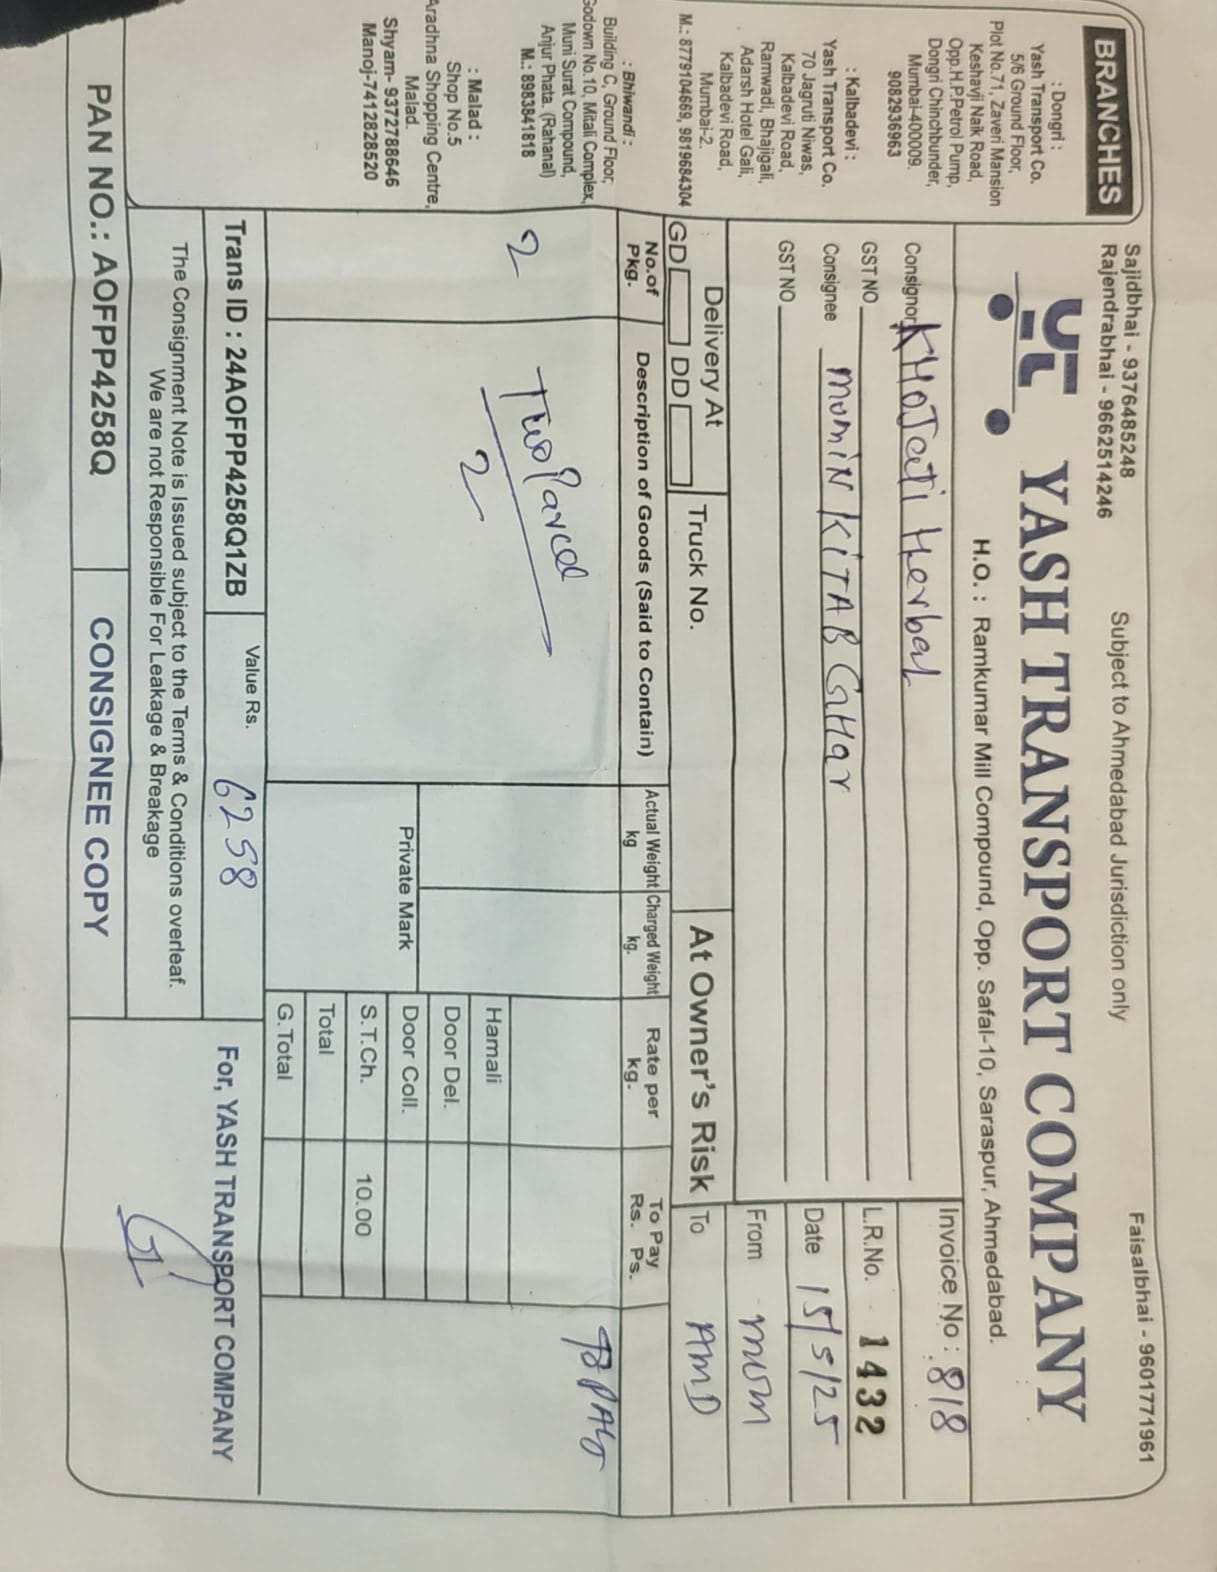 Sajidbhai - 9376485248
Rajendrabhai - 9662514246
Subject to Ahmedabad Jurisdiction only
Faisalbhai - 9601771961
YASH TRANSPORT COMPANY
H.O. : Ramkumar Mill Compound, Opp. Safal-10, Saraspur, Ahmedabad.
BRANCHES
: Dongri :
Yash Transport Co.
5/6 Ground Floor,
Plot No.71, Zaveri Mansion
Keshavji Naik Road,
Opp.H.P.Petrol Pump,
Dongri Chinchbunder,
Mumbai-400009.
9082936963
: Kalbadevi :
Yash Transport Co.
70 Jagruti Niwas,
Kalbadevi Road,
Ramwadi, Bhajigali,
Adarsh Hotel Gali,
Kalbadevi Road,
Mumbai-2.
M.: 8779104669, 9819684304
: Bhiwandi :
Building C, Ground Floor,
Godown No.10, Mitali Complex,
Muni Surat Compound,
Anjur Phata. (Rahanal)
M.: 8983841818
: Malad :
Shop No.5
Aradhna Shopping Centre,
Malad.
Shyam- 9372788646
Manoj-7412828520
Consignor KHOJati Herbal
GST NO
Consignee MUMIN KITAB GHar
GST NO
Invoice No : 818
L.R.No. 1432
Date 15/5/25
From MUM
To AMD
Delivery At
GD DD
Truck No.
At Owner's Risk
No.of Pkg.
Description of Goods (Said to Contain)
Actual Weight kg
Charged Weight kg.
Rate per kg.
To Pay Rs. Ps.
2
Two Parcel
2
To PAY
Hamali
Door Del.
Door Coll.
S.T.Ch. 10.00
Total
G.Total
Private Mark
Trans ID : 24AOFPP4258Q1ZB
Value Rs. 6258
The Consignment Note is Issued subject to the Terms & Conditions overleaf.
We are not Responsible For Leakage & Breakage
For, YASH TRANSPORT COMPANY
PAN NO.: AOFPP4258Q
CONSIGNEE COPY